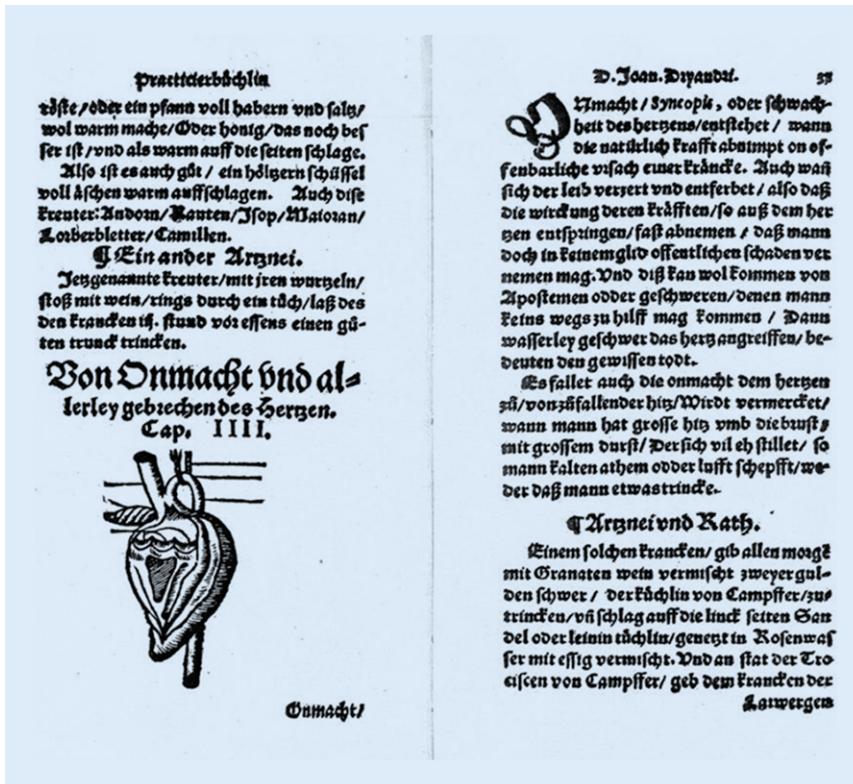 Practicierbüchlin
röste/oder ein pfann voll habern vnd saltz/
wol warm mache/Oder honig/das noch bes
ser ist/vnd als warm auff die seiten schlage.
Also ist es auch gůt/ ein höltzern schüssel
voll äschen warm auffschlagen. Auch dise
kreuter: Andorn/Rauten/Isop/Maioran/
Lorberbletter/Camillen.
¶ Ein ander Artznei.
Jetzgenannte kreuter/mit jren wurtzeln/
stoß mit wein/rings durch ein tůch/laß des
den krancken iij. stund vor essens einen gů-
ten trunck trincken.
Von Onmacht vnd al-
lerley gebrechen des Hertzen.
Cap. IIII.
Onmacht/
D. Joan. Dryandri.
ONmacht/Syncopis, oder schwach-
heit des hertzens/entstehet/ wann
die natürlich krafft abnimpt on of-
fenbarliche vrsach einer kräncke. Auch wañ
sich der leib verzert vnd entferbet/ also daß
die wirckung deren kräfften/so auß dem her
tzen entspringen/fast abnemen/ daß mann
doch in keinem glid offentlichen schaden ver
nemen mag. Vnd diß kan wol kommen von
Apostemen odder geschweren/denen mann
keins wegs zu hilff mag kommen/ Dann
wasserley geschwer das hertz angreiffen/be-
deuten den gewissen todt.
Es fallet auch die onmacht dem hertzen
zů/von zůfallender hitz/Wirdt vermercket/
wann mann hat grosse hitz vmb die brust/
mit grossem durst/Der sich vil eh stillet/ so
mann kalten athem odder lufft schepfft/we-
der daß mann etwas trincke.
¶ Artznei vnd Rath.
Einem solchen krancken/ gib allen morgē
mit Granaten wein vermischt zweyer gul-
den schwer/ der küchlin von Campffer/zu-
trincken/vñ schlag auff die linck seiten San
del oder leinin tüchlin/genetzt in Rosenwas
ser mit essig vermischt. Vnd an stat der Tro
ciscen von Campffer/ geb dem krancken der
Latwergen